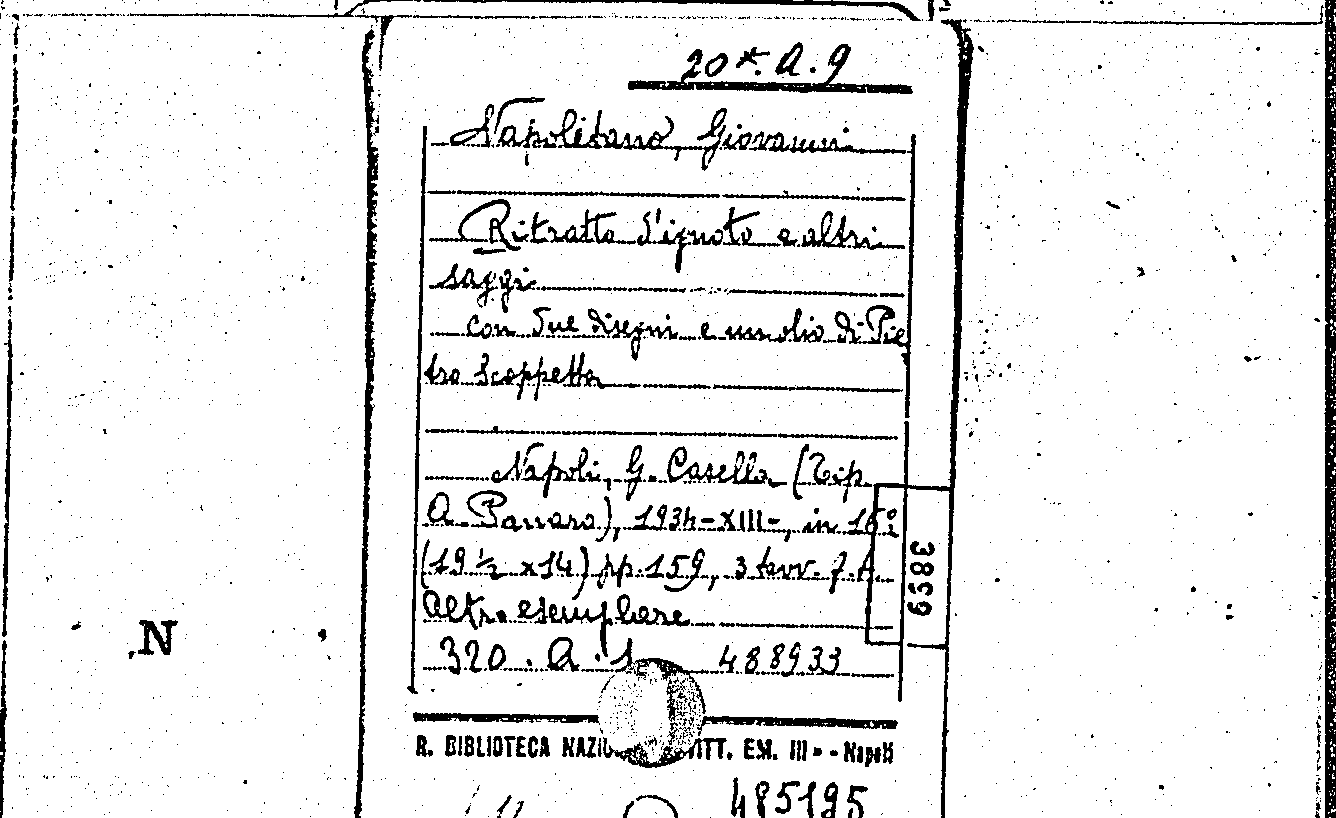 20*. A. 9
Napolitano, Giovanni
Ritratto d'ignoto e altri
saggi
con due disegni e un olio di Pie
tro Scoppetta
Napoli, G. Casella (Tip.
A. Panara), 1934-XIII-, in 16º
(19½ x14) pp. 159, 3 tavv. f.t.
Altro esemplare
320. A. 1 488933
3859
N
R. BIBLIOTECA VITT. EM. III» - Napoli
485195